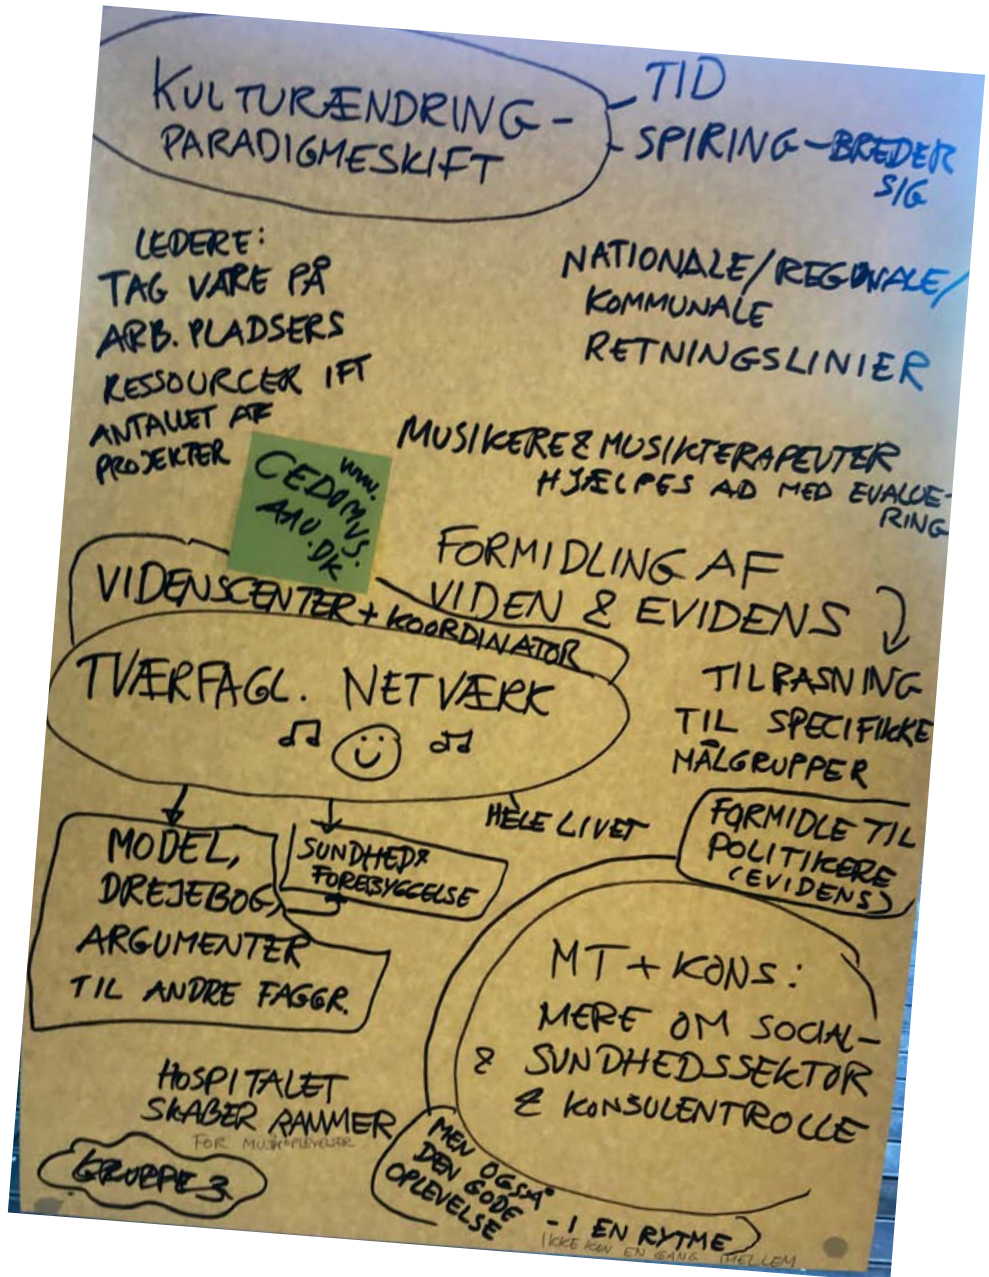 KULTURÆNDRING -
PARADIGMESKIFT
- TID
- SPIRING - BREDER
SIG
LEDERE:
TAG VARE PÅ
ARB. PLADSERS
RESSOURCER IFT
ANTALLET AF
PROJEKTER
NATIONALE/REGIONALE/
KOMMUNALE
RETNINGSLINIER
MUSIKERE & MUSIKTERAPEUTER
HJÆLPES AD MED EVALUE-
RING
www.
CEDOMUS.
AAU.DK
FORMIDLING AF
VIDEN & EVIDENS
TILPASNING
TIL SPECIFIKKE
MÅLGRUPPER
VIDENSCENTER + KOORDINATOR
TVÆRFAGL. NETVÆRK
HELE LIVET
FORMIDLE TIL
POLITIKERE
(EVIDENS)
MODEL,
DREJEBOG,
ARGUMENTER
TIL ANDRE FAGGR.
SUNDHED &
FOREBYGGELSE
MT + KONS:
MERE OM SOCIAL-
& SUNDHEDSSEKTOR
& KONSULENTROLLE
HOSPITALET
SKABER RAMMER
FOR MUSIKOPLEVELSER
GRUPPE 3
MEN OGSÅ
DEN GODE
OPLEVELSE
- I EN RYTME
IKKE KUN EN GANG IMELLEM